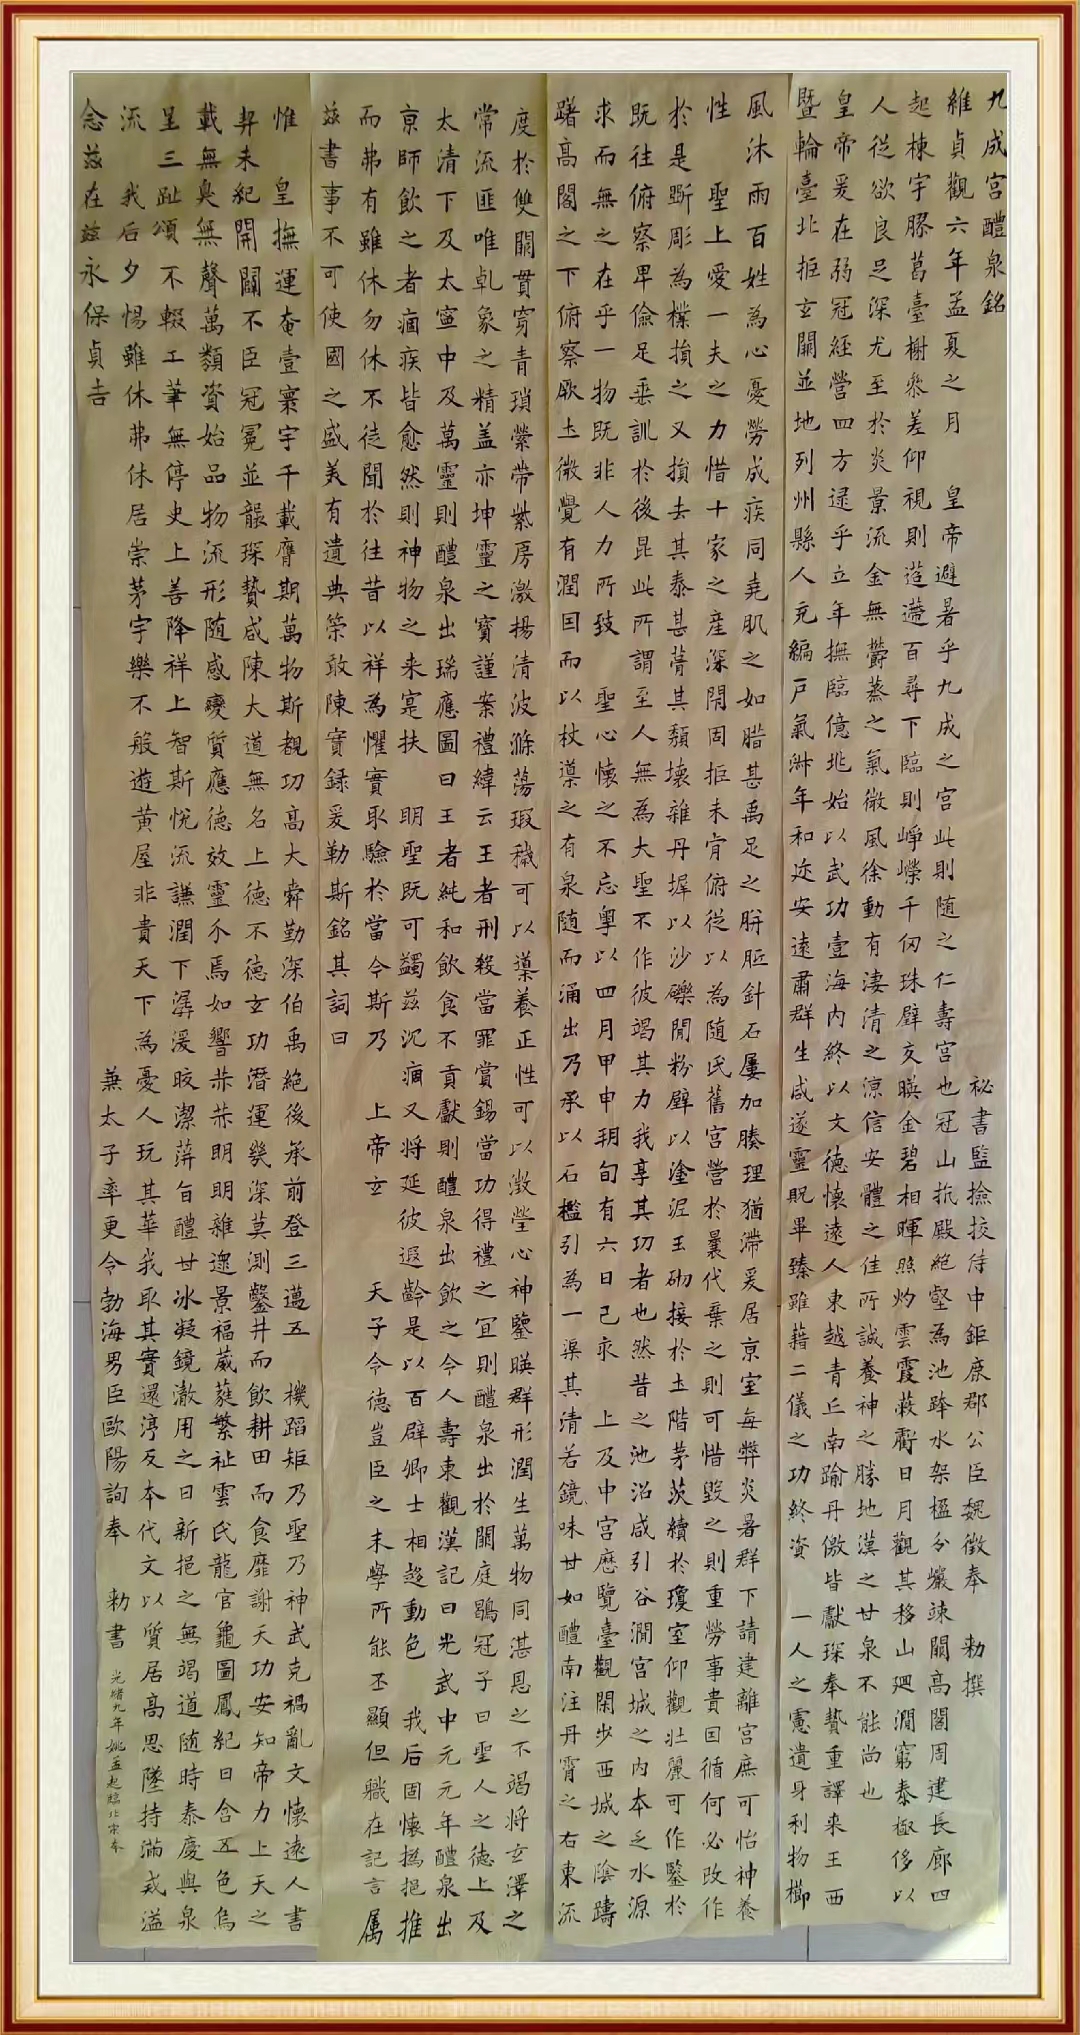 九成宮醴泉銘 祕書監撿挍侍中鉅鹿郡公臣魏徵奉 勑撰
維貞觀六年孟夏之月 皇帝避暑乎九成之宮此則随之仁壽宮也冠山抗殿絕壑為池跨水架楹分巖竦闕高閣周建長廊四
起棟宇膠葛臺榭參差仰視則迢遰百尋下臨則崢嶸千仞珠壁交暎金碧相暉照灼雲霞蔽虧日月觀其移山廻澗窮泰極侈以
人從欲良足深尤至於炎景流金無鬱蒸之氣微風徐動有淒清之涼信安體之佳所誠養神之勝地漢之甘泉不能尚也
皇帝爰在弱冠經營四方逮乎立年撫臨億兆始以武功壹海內終以文德懷遠人東越青丘南踰丹儌皆獻琛奉贄重譯来王西
暨輪臺北拒玄闕並地列州縣人充編戶氣淑年和迩安遠肅群生咸遂靈貺畢臻雖藉二儀之功終資 一人之慮遺身利物櫛
風沐雨百姓為心憂勞成疾同堯肌之如腊甚禹足之胼胝針石屢加腠理猶滯爰居京室每弊炎暑群下請建離宮庶可怡神養
性 聖上愛一夫之力惜十家之產深閇固拒未肯俯從以為随氏舊宮營於曩代棄之則可惜毀之則重勞事貴因循何必改作
於是斲彫為樸損之又損去其泰甚葺其頹壞雜丹墀以沙礫閒粉壁以塗泥玉砌接於土階茅茨續於瓊室仰觀壯麗可作鑒於
既往俯察卑儉足垂訓於後昆此所謂至人無為大聖不作彼竭其力我享其功者也然昔之池沼咸引谷澗宮城之內本乏水源
求而無之在乎一物既非人力所致 聖心懷之不忘粵以四月甲申朔旬有六日己亥 上及中宮歷覽臺觀閑步西城之陰躊
躇高閣之下俯察厥土微覺有潤因而以杖導之有泉随而涌出乃承以石檻引為一渠其清若鏡味甘如醴南注丹霄之右東流
度於雙闕貫穿青瑣縈帶紫房激揚清波滌蕩瑕穢可以導養正性可以澂瑩心神鑒暎群形潤生萬物同湛恩之不竭將玄澤之
常流匪唯乹象之精盖亦坤靈之寶謹案禮緯云王者刑殺當罪賞錫當功得禮之宜則醴泉出於闕庭鶡冠子曰聖人之德上及
太清下及太寧中及萬靈則醴泉出瑞應圖曰王者純和飲食不貢獻則醴泉出飲之令人壽東觀漢記曰光武中元元年醴泉出
京師飲之者痼疾皆愈然則神物之来寔扶 明聖既可蠲茲沉痼又將延彼遐齡是以百辟卿士相趍動色 我后固懷撝挹推
而弗有雖休勿休不徒聞於往昔以祥為懼實取驗於當今斯乃 上帝玄 天子令德豈臣之末學所能丕顯但職在記言属
茲書事不可使國之盛美有遺典策敢陳實録爰勒斯銘其詞曰
惟 皇撫運奄壹寰宇千載膺期萬物斯覩功高大舜勤深伯禹絕後承前登三邁五 機蹈矩乃聖乃神武克禍亂文懷遠人書
契未紀開闢不臣冠冕並襲琛贄咸陳大道無名上德不德玄功潛運幾深莫測鑿井而飲耕田而食靡謝天功安知帝力上天之
載無臭無聲萬類資始品物流形随感變質應德效靈介焉如響赫赫明明雜遝景福葳蕤繁祉雲氏龍官龜圖鳳紀日含五色烏
呈三趾頌不輟工筆無停史上善降祥上智斯悅流謙潤下潺湲皎潔蓱旨醴甘冰凝鏡澈用之日新挹之無竭道随時泰慶與泉
流 我后夕惕雖休弗休居崇茅宇樂不般遊黃屋非貴天下為憂人玩其華我取其實還淳反本代文以質居高思墜持滿戒溢
念茲在茲永保貞吉 兼太子率更令勃海男臣歐陽詢奉 勑書 光緒九年姚孟起臨北宋本